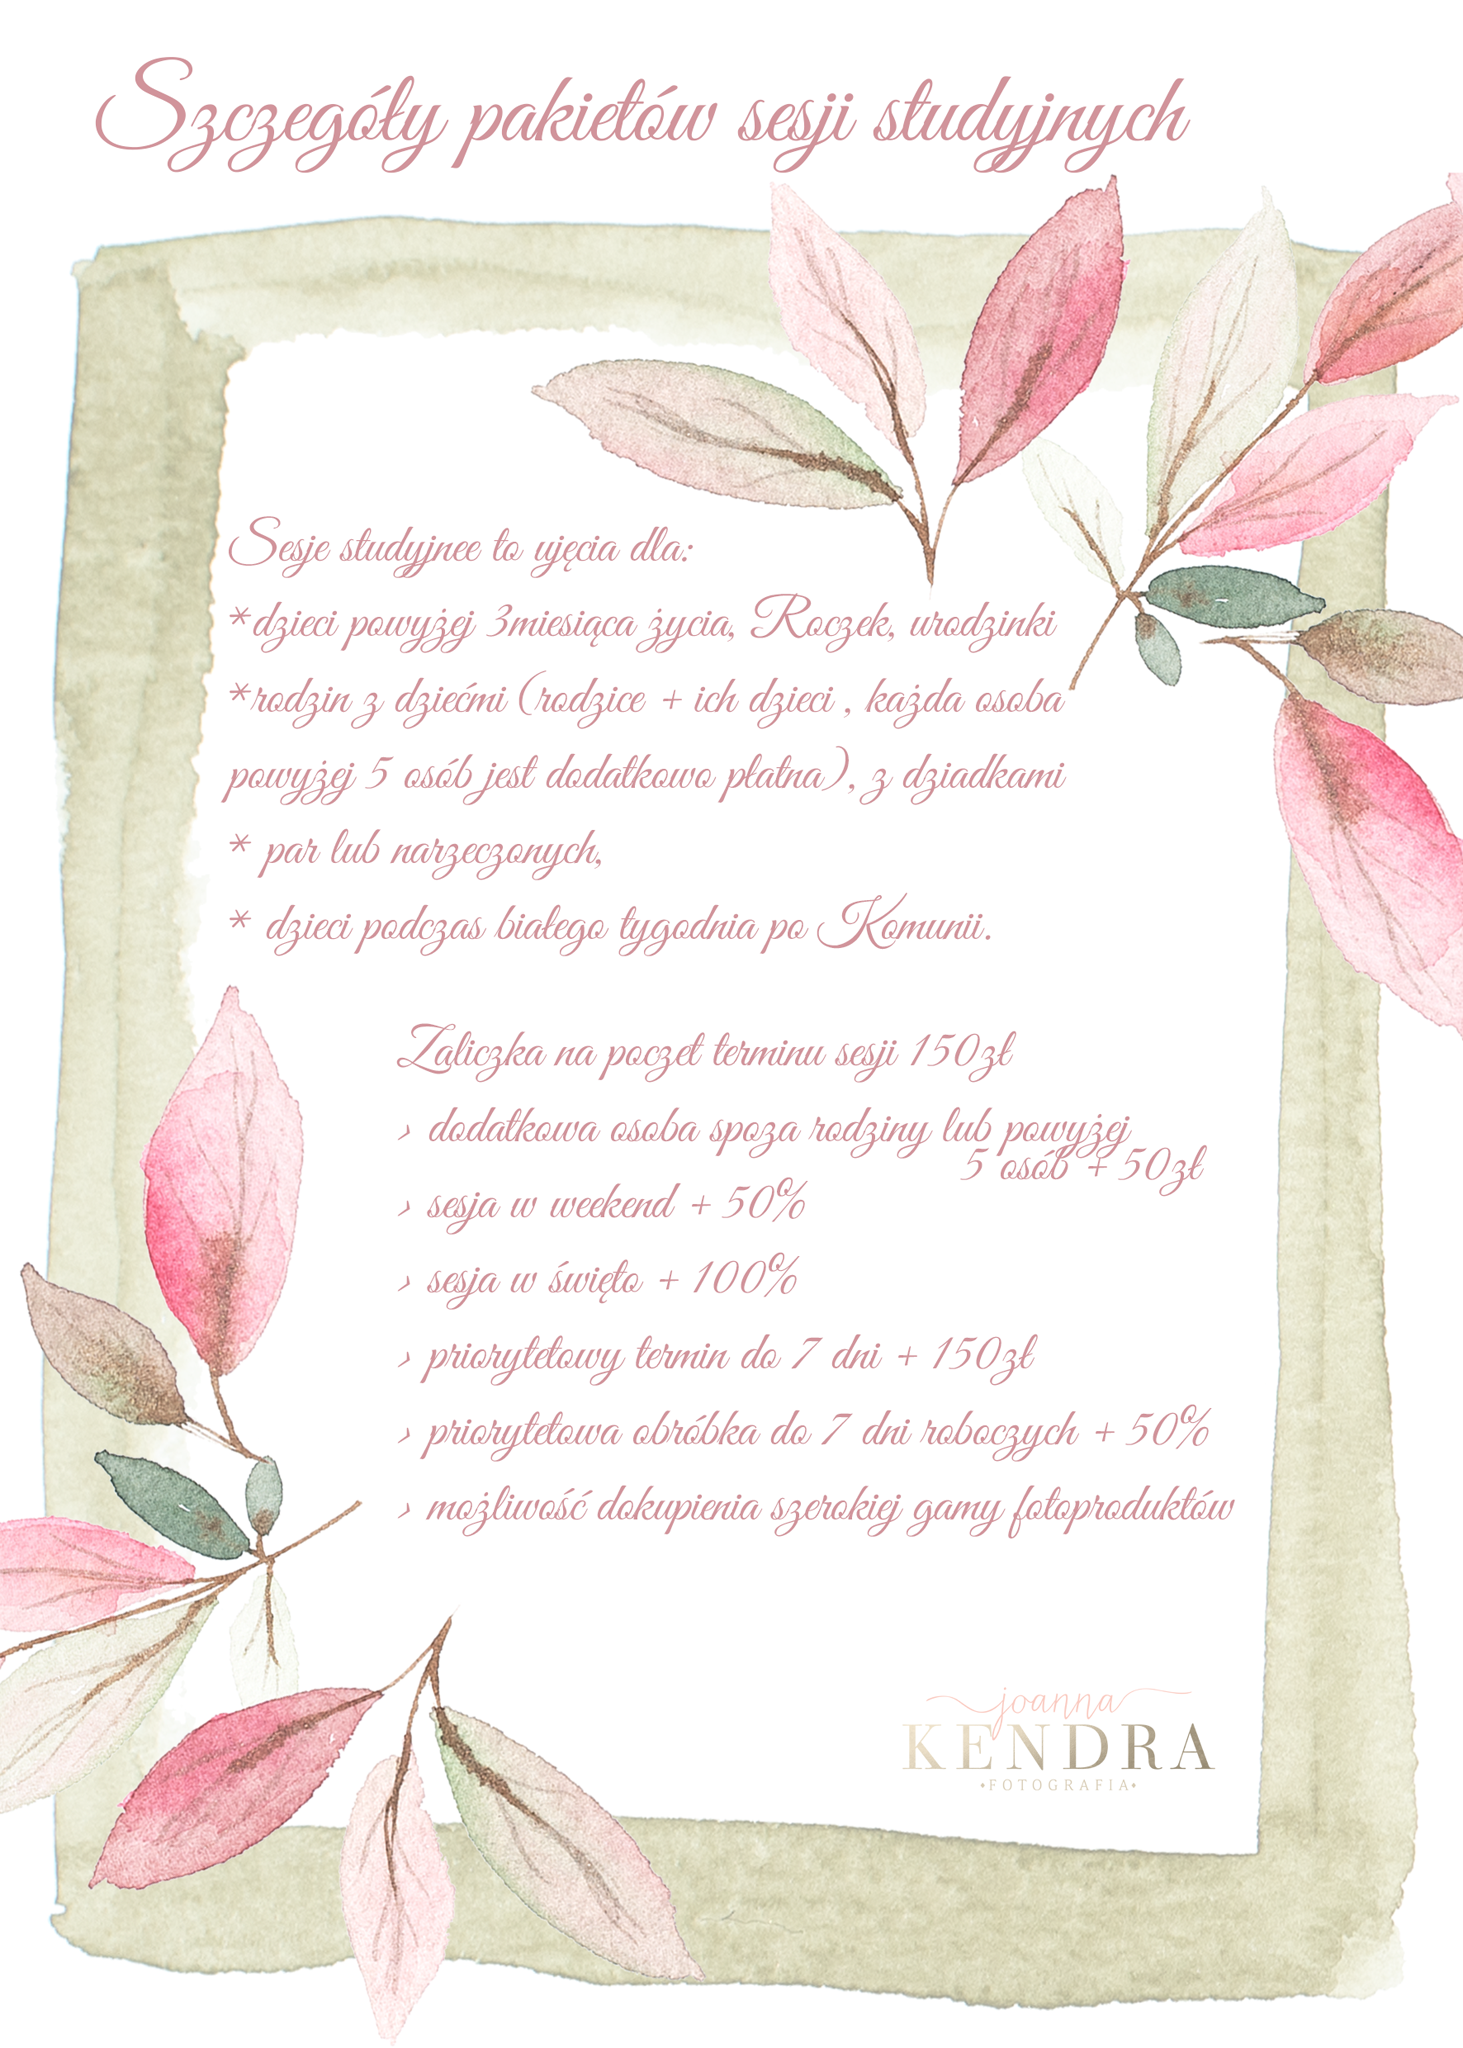 Szczegóły pakietów sesji studyjnych
Sesje studyjnee to ujęcia dla:
*dzieci powyżej 3miesiąca życia, Roczek, urodzinki
*rodzin z dziećmi (rodzice + ich dzieci , każda osoba
powyżej 5 osób jest dodatkowo płatna), z dziadkami
* par lub narzeczonych,
* dzieci podczas białego tygodnia po Komunii.
Zaliczka na poczet terminu sesji 150zł
› dodatkowa osoba spoza rodziny lub powyżej
5 osób + 50zł
› sesja w weekend + 50%
› sesja w święto + 100%
› priorytetowy termin do 7 dni + 150zł
› priorytetowa obróbka do 7 dni roboczych + 50%
› możliwość dokupienia szerokiej gamy fotoproduktów
joanna
KENDRA
•FOTOGRAFIA•